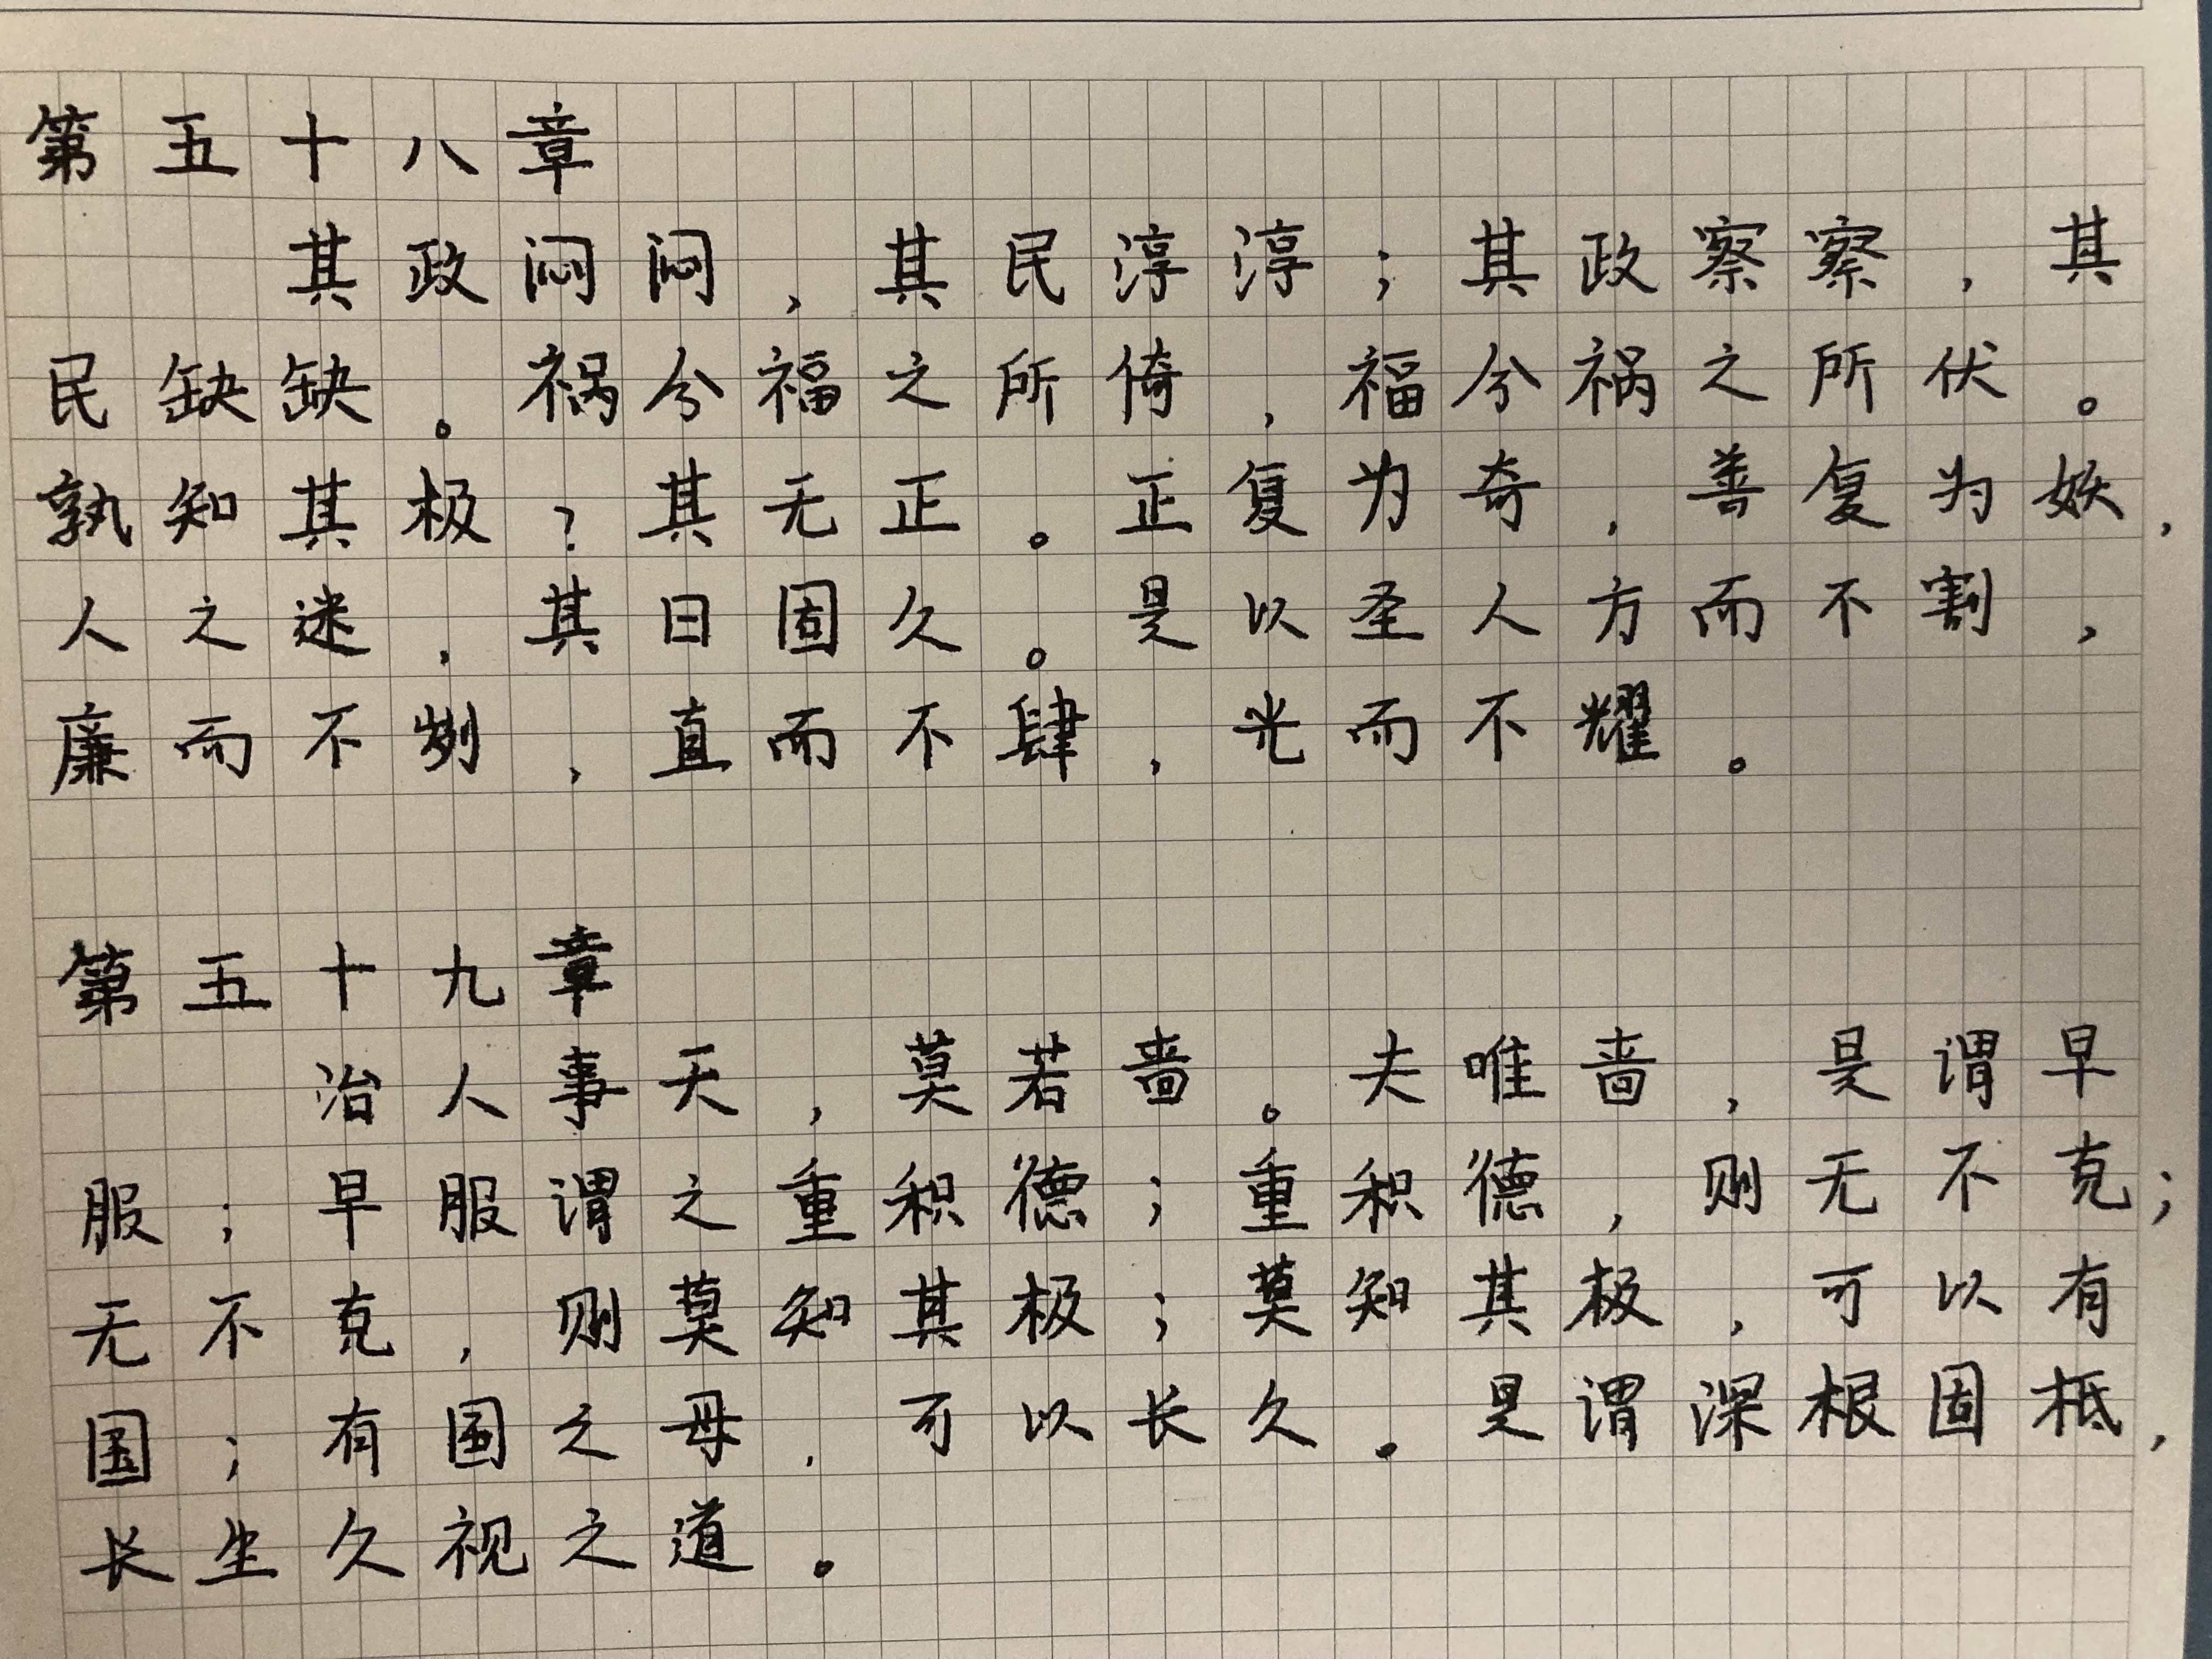 第五十八章
其政闷闷，其民淳淳；其政察察，其
民缺缺。祸兮福之所倚，福兮祸之所伏。
孰知其极？其无正。正复为奇，善复为妖，
人之迷，其日固久。是以圣人方而不割，
廉而不刿，直而不肆，光而不耀。
第五十九章
治人事天，莫若啬。夫唯啬，是谓早
服；早服谓之重积德；重积德，则无不克；
无不克，则莫知其极；莫知其极，可以有
国；有国之母，可以长久。是谓深根固柢，
长生久视之道。